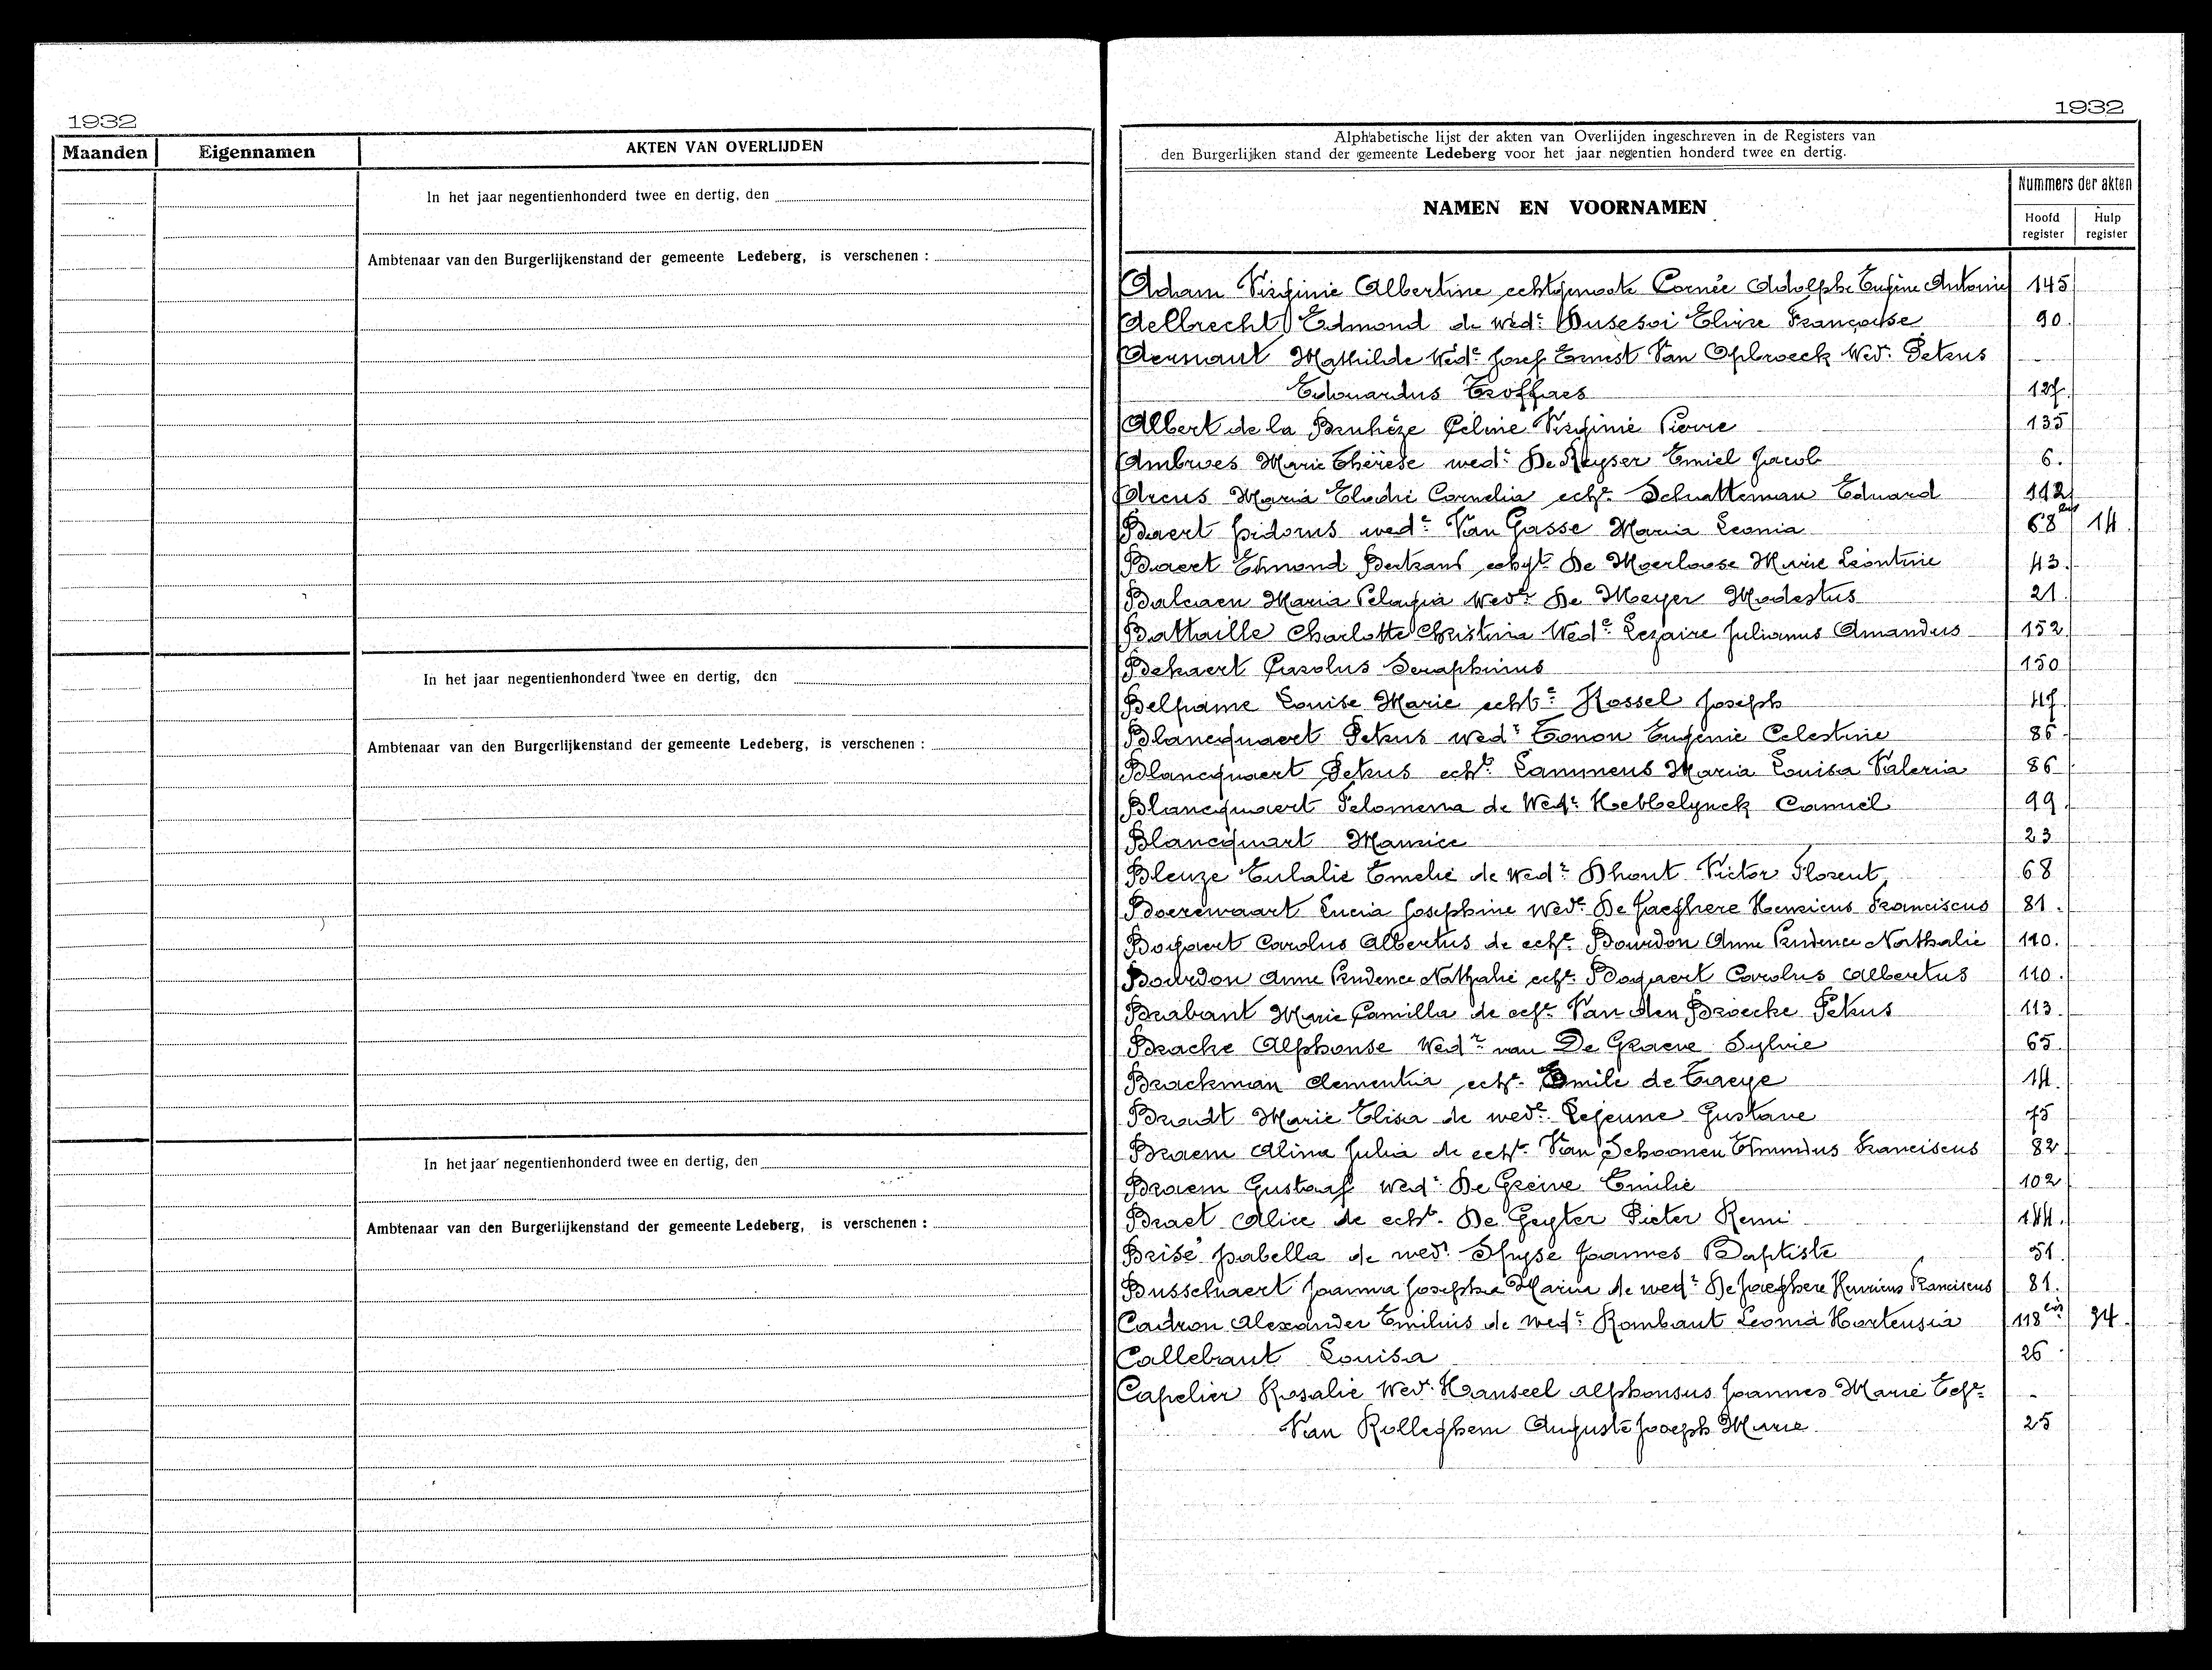 1932
Maanden Eigennamen AKTEN VAN OVERLIJDEN
In het jaar negentienhonderd twee en dertig, den
Ambtenaar van den Burgerlijkenstand der gemeente Ledeberg, is verschenen :
In het jaar negentienhonderd twee en dertig, den
Ambtenaar van den Burgerlijkenstand der gemeente Ledeberg, is verschenen :
In het jaar negentienhonderd twee en dertig, den
Ambtenaar van den Burgerlijkenstand der gemeente Ledeberg, is verschenen :
1932
Alphabetische lijst der akten van Overlijden ingeschreven in de Registers van
den Burgerlijken stand der gemeente Ledeberg voor het jaar negentien honderd twee en dertig.
NAMEN EN VOORNAMEN
Nummers der akten
Hoofd register Hulp register
Adam Virginie Albertine echtgenoote Cornée Adolphe Eugène Antonie 145
Aelbrecht Edmond de wedr Dusesoi Elvire Françoise 90.
Aernaut Mathilde Wede Josef Ernest Van Opbroeck Wed. Petrus
Edouardus Troffaes 127
Albert de la Bruhèze Céline Virginie Pierre 135
Ambroes Marie Thérèse wede De Keyser Emiel Jacob 6.
Arens Maria Elodie Cornelia echte Schatteman Eduard 112
Baert Isidorus wedr Van Gasse Maria Leonia 68bis 14.
Baert Edmond Bertrand echgt De Moerloose Marie Léontine 43.
Balcaen Maria Pelagia Wede De Meyer Modestus 21.
Battaille Charlotte Christina Wede Lezaire Julianus Amandus 152
Bekaert Carolus Seraphinus 150
Belpame Louise Marie echte Hossel Joseph 47
Blancquaert Petrus wedr Tonon Eugenie Celestine 86
Blancquaert Petrus echte Lammens Maria Louisa Valeria 86
Blancquaert Felomena de Wede Hebbelynck Camiel 99.
Blancquart Maurice 23
Bleuze Eulalie Emelie de wede Dhont Victor Florent 68
Boerewaart Lucia Josephine wede De Jaeghere Henricus Franciscus 81.
Bogaert Carolus Albertus de echte Bourdon Anne Prudence Nathalie 110.
Bourdon Anne Prudence Nathalie echte Bogaert Carolus Albertus 110.
Brabant Marie Camilla de echte Van den Broecke Petrus 113.
Brache Alphonse Wedr van De Graeve Sylvie 65.
Brackman Clementia echte Emile de Traeye 14.
Bradt Marie Elisa de wede Lejeune Gustave 75
Braem Alina Julia de echte Van Schoonen Edmundus Franciscus 82
Braem Gustaaf wedr De Grève Emilie 102
Braet Alice de echte De Geyter Pieter Remi 144.
Brisé Isabella de wede Ghyse Joannes Baptiste 51.
Busschaert Joanna Josepha Maria de wede De Jaeghere Henricus Franciscus 81.
Cadron Alexander Emilius de wedr Rombaut Leonia Hortensia 118bis 34.
Callebaut Louisa 26
Capelier Rosalie Wed. Hanseel Alphonsus Joannes Marie Echte
Van Rolleghem Auguste Joseph Marie 25